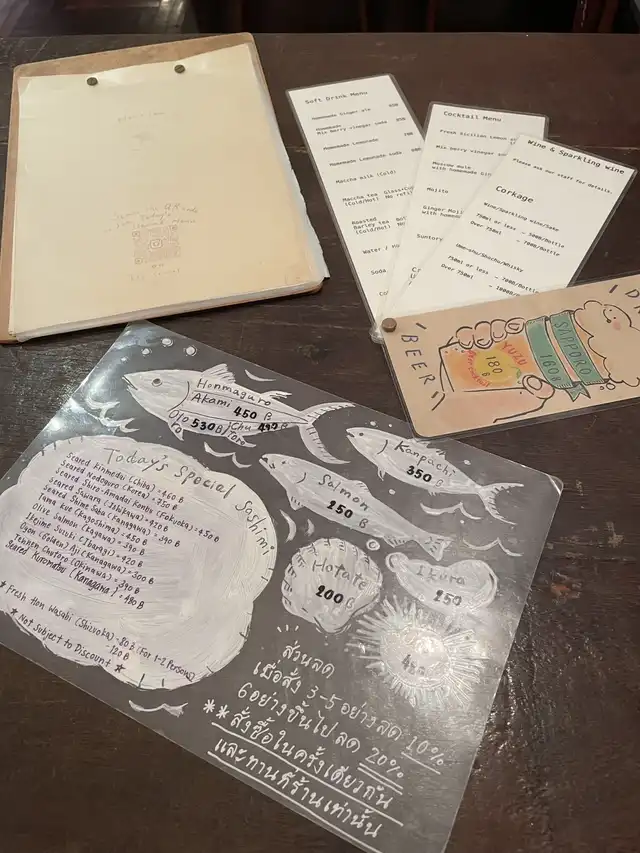 Soft Drink Menu
Homemade Ginger ale
Homemade
Mix berry vinegar soda
Homemade Lemonade
Homemade Lemonade soda
Matcha milk (Cold)
Matcha tea
(Cold/Hot)
Roasted
Barley tea
(Cold/Hot)
Water /
Soda
Cocktail Menu
Fresh Sicilian Lemon
Mix berry vinegar
Moscow mule
with homemade
Mojito
Ginger
with
Suntory
Wine & Sparkling wine
Please ask our staff for details.
Corkage
Wine/Sparkling wine/Sake
750ml or less - 500B/Bottle
Over 750ml - 700B/Bottle
Ume-shu/Shochu/Whisky
750ml or less - 700B/Bottle
Over 750ml - 1000B/
BEER
YUZU
180
B
SAPPORO
160B
Honmaguro
Akami 450 B
Oto
ro 530B
Chu
Toro
Kanpachi
350 B
Salmon
250 B
Hotate
200 B
Ikura
250
Today's Special Sashimi
Seared Kinmedai (Chiba) = 460 B
Seared Nodoguro (Korea) = 750 B
Seared Shiro-Amadai Konbu (Fukuoka) = 450 B
Seared Sawara (Ishikawa) = 420 B
Seared Shime Saba (Kanagawa) = 390 B
Tama Kue (Kagoshima) = 450 B
Olive Salmon (Kagawa) = 390 B
Ikejime Suzuki (Ibaragi) = 420 B
Ogon (Golden) Aji (Kanagawa) = 300 B
Tennen Chutoro (Okinawa) = 390 B
Seared Kuromutsu (Kanagawa) = 490 B
* Fresh Hon Wasabi (Shizuoka) - 80 B (For 1-2 Persons)
- 120 B
* Not Subject to Discount *
ส่วนลด
เมื่อสั่ง 3-5 อย่างลด 10%
6อย่างขึ้นไป ลด 20%
**สั่งซื้อในครั้งเดียวกัน
และทานที่ร้านเท่านั้น